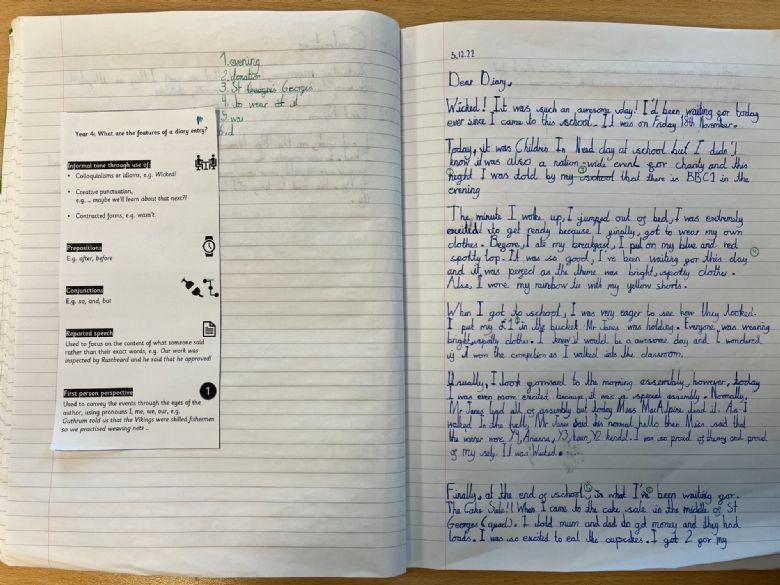 1. evening
2. donation
3. St Georges Georges
4. to wear it
5. was
Year 4: What are the features of a diary entry?
Informal tone through use of:
• Colloquialisms or idioms, e.g. Wicked!
• Creative punctuation,
e.g. … maybe we'll learn about that next?!
• Contracted forms, e.g. wasn't.
Prepositions
E.g. after, before
Conjunctions
E.g. so, and, but
Reported speech
Used to focus on the content of what someone said
rather than their exact words, e.g. Our work was
inspected by Rustbeard and he said that he approved!
First person perspective
1
Used to convey the events through the eyes of the
author, using pronouns I, me, we, our, e.g.
Guthrum told us that the Vikings were skilled fishermen
so we practised weaving nets …
5.12.22
Dear Diary,
Wicked! It was such an awesome day! I'd been waiting for today
ever since I came to this school. It was on Friday 18th November.
Today, it was Children In Need day at school but I didn't
know it was also a nation-wide event for charity and this
night I was told by my school that there is BBC1 in the
evening
The minute I woke up, I jumped out of bed, I was extremly
excited to get ready because I finally, got to wear my own
clothes. Before, I ate my breakfast, I put on my blue and red
spotty top. It was so good, I've been waiting for this day
and it was perfect as the theme was bright, spotty clothes.
Also, I wore my rainbow tie with my yellow shorts.
When I got to school, I was very eager to see how they looked.
I put my £1 in the bucket Mr Jones was holding. Everyone was wearing
bright, spotty clothes. I knew it would be a awesome day and I wondered
if I won the competion as I walked into the classroom.
Usually, I look forward to the morning assembly, however, today
I was even more excited because it was a special assembly. Normally,
Mr Jones lead all of assembly but today Miss MacAlpine lead it. As I
walked In the hall, Mr Jones said his normal hello then Miss said that
the winner were, Y4, Arianna, Y3, Y2 I was so proud of them and proud
of my self. It was Wicked.
Finally, at the end of school, Is what I've been waiting for.
The Cake Sale!! When I came to the cake sale in the middle of St
Georges (quad). I told mum and dad to get money and they had
loads. I was so excited to eat the cupcakes. I got 2 for my